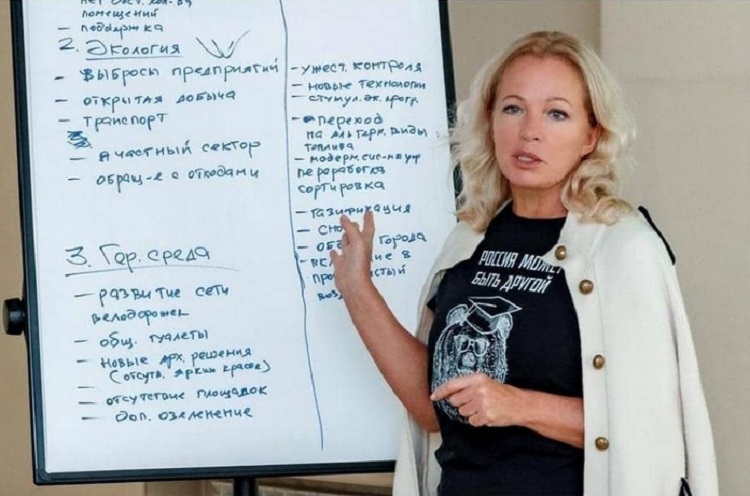 помещений
- поддержка
2. Экология
- выбросы предприятий
- открытая добыча
- транспорт
- частный сектор
- обращ-е с отходами
3. Гор. среда
- развитие сети
велодорожек
- общ. туалеты
- новые арх. решения
(отсутв. ярких красок)
- отсутствие площадок
- доп. озеленение
- ужест. контроля
- новые технологии
- стимул. эк. прогр.
- переход
на альтерн. виды
топлива
- модерн.
переработка
сортировка
- газификация
города
в
РОССИЯ МОЖЕТ
БЫТЬ ДРУГОЙ